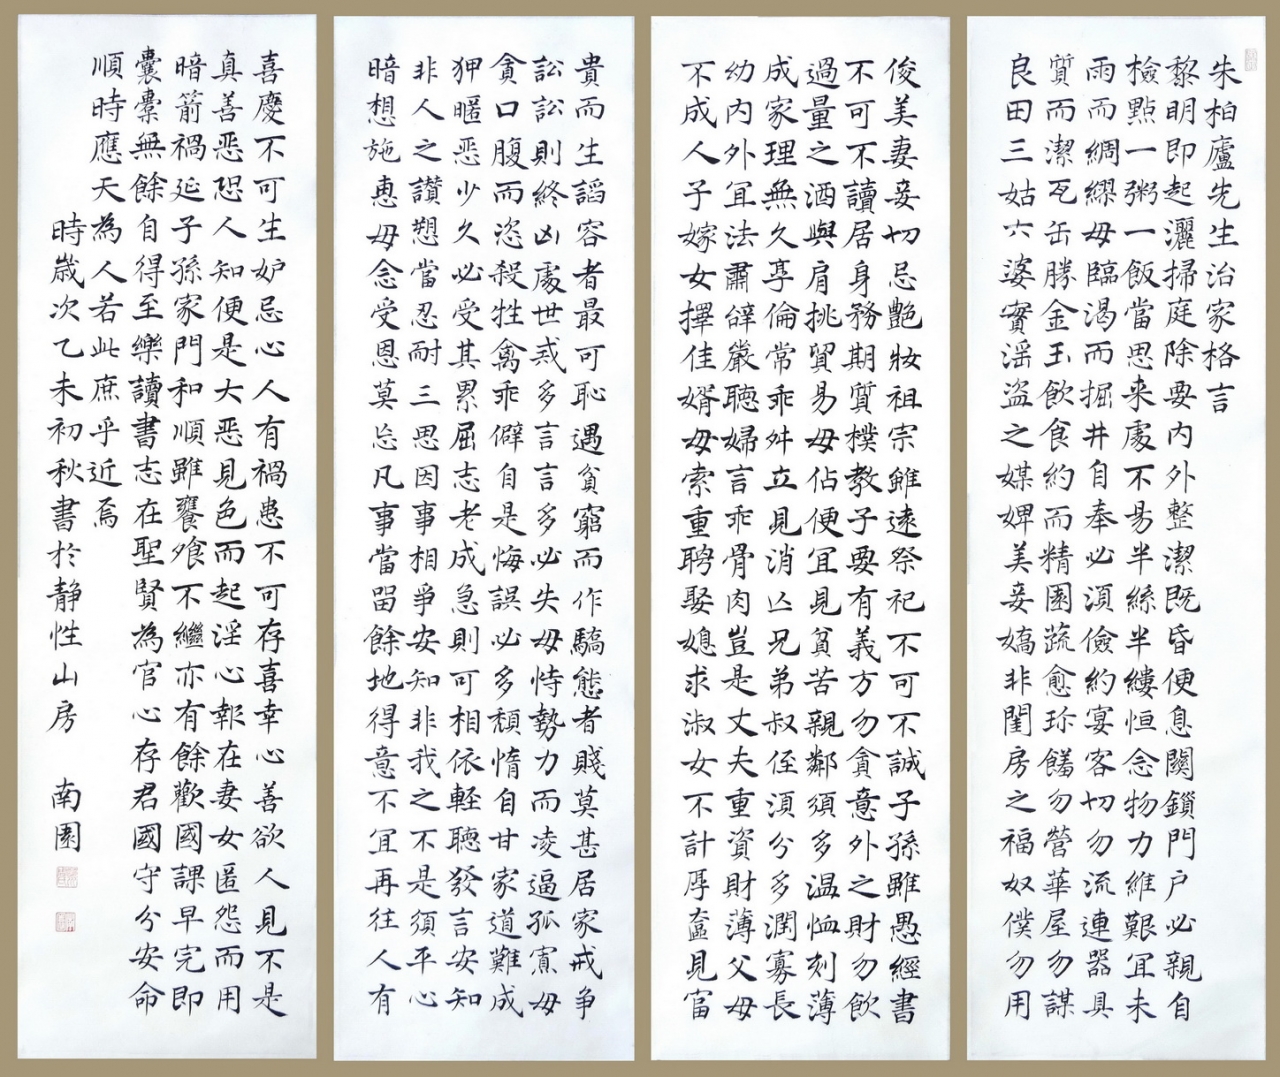 朱柏廬先生治家格言
黎明即起灑掃庭除要内外整潔既昏便息關鎖門户必親自
檢點一粥一飯當思来處不易半絲半縷恒念物力維艱宜未
雨而綢繆毋臨渴而掘井自奉必須儉約宴客切勿流連器具
質而潔瓦缶勝金玉飲食約而精園蔬愈珍饈勿營華屋勿謀
良田三姑六婆實淫盜之媒婢美妾嬌非閨房之福奴僕勿用
俊美妻妾切忌艷妝祖宗雖遠祭祀不可不誠子孫雖愚經書
不可不讀居身務期質樸教子要有義方勿貪意外之財勿飲
過量之酒與肩挑貿易毋佔便宜見貧苦親鄰須多温恤刻薄
成家理無久享倫常乖舛立見消亡兄弟叔侄須分多潤寡長
幼内外宜法肅辭嚴聽婦言乖骨肉豈是丈夫重資財薄父母
不成人子嫁女擇佳婿毋索重聘娶媳求淑女不計厚奩見富
貴而生諂容者最可恥遇貧窮而作驕態者賤莫甚居家戒争
訟訟則終凶處世戒多言言多必失毋恃勢力而凌逼孤寡毋
貪口腹而恣殺牲禽乖僻自是悔誤必多頹惰自甘家道難成
狎暱恶少久必受其累屈志老成急則可相依軽聽發言安知
非人之讃愬當忍耐三思因事相爭安知非我之不是須平心
暗想施恵毋念受恩莫忘凡事當留餘地得意不宜再往人有
喜慶不可生妒忌心人有禍患不可存喜幸心善欲人見不是
真善恶恐人知便是大恶見色而起淫心報在妻女匿怨而用
暗箭禍延子孫家門和順雖饔飧不繼亦有餘歡國課早完即
囊橐無餘自得至樂讀書志在聖賢為官心存君國守分安命
順時應天為人若此庶乎近焉
時歲次乙未初秋書於静性山房 南園